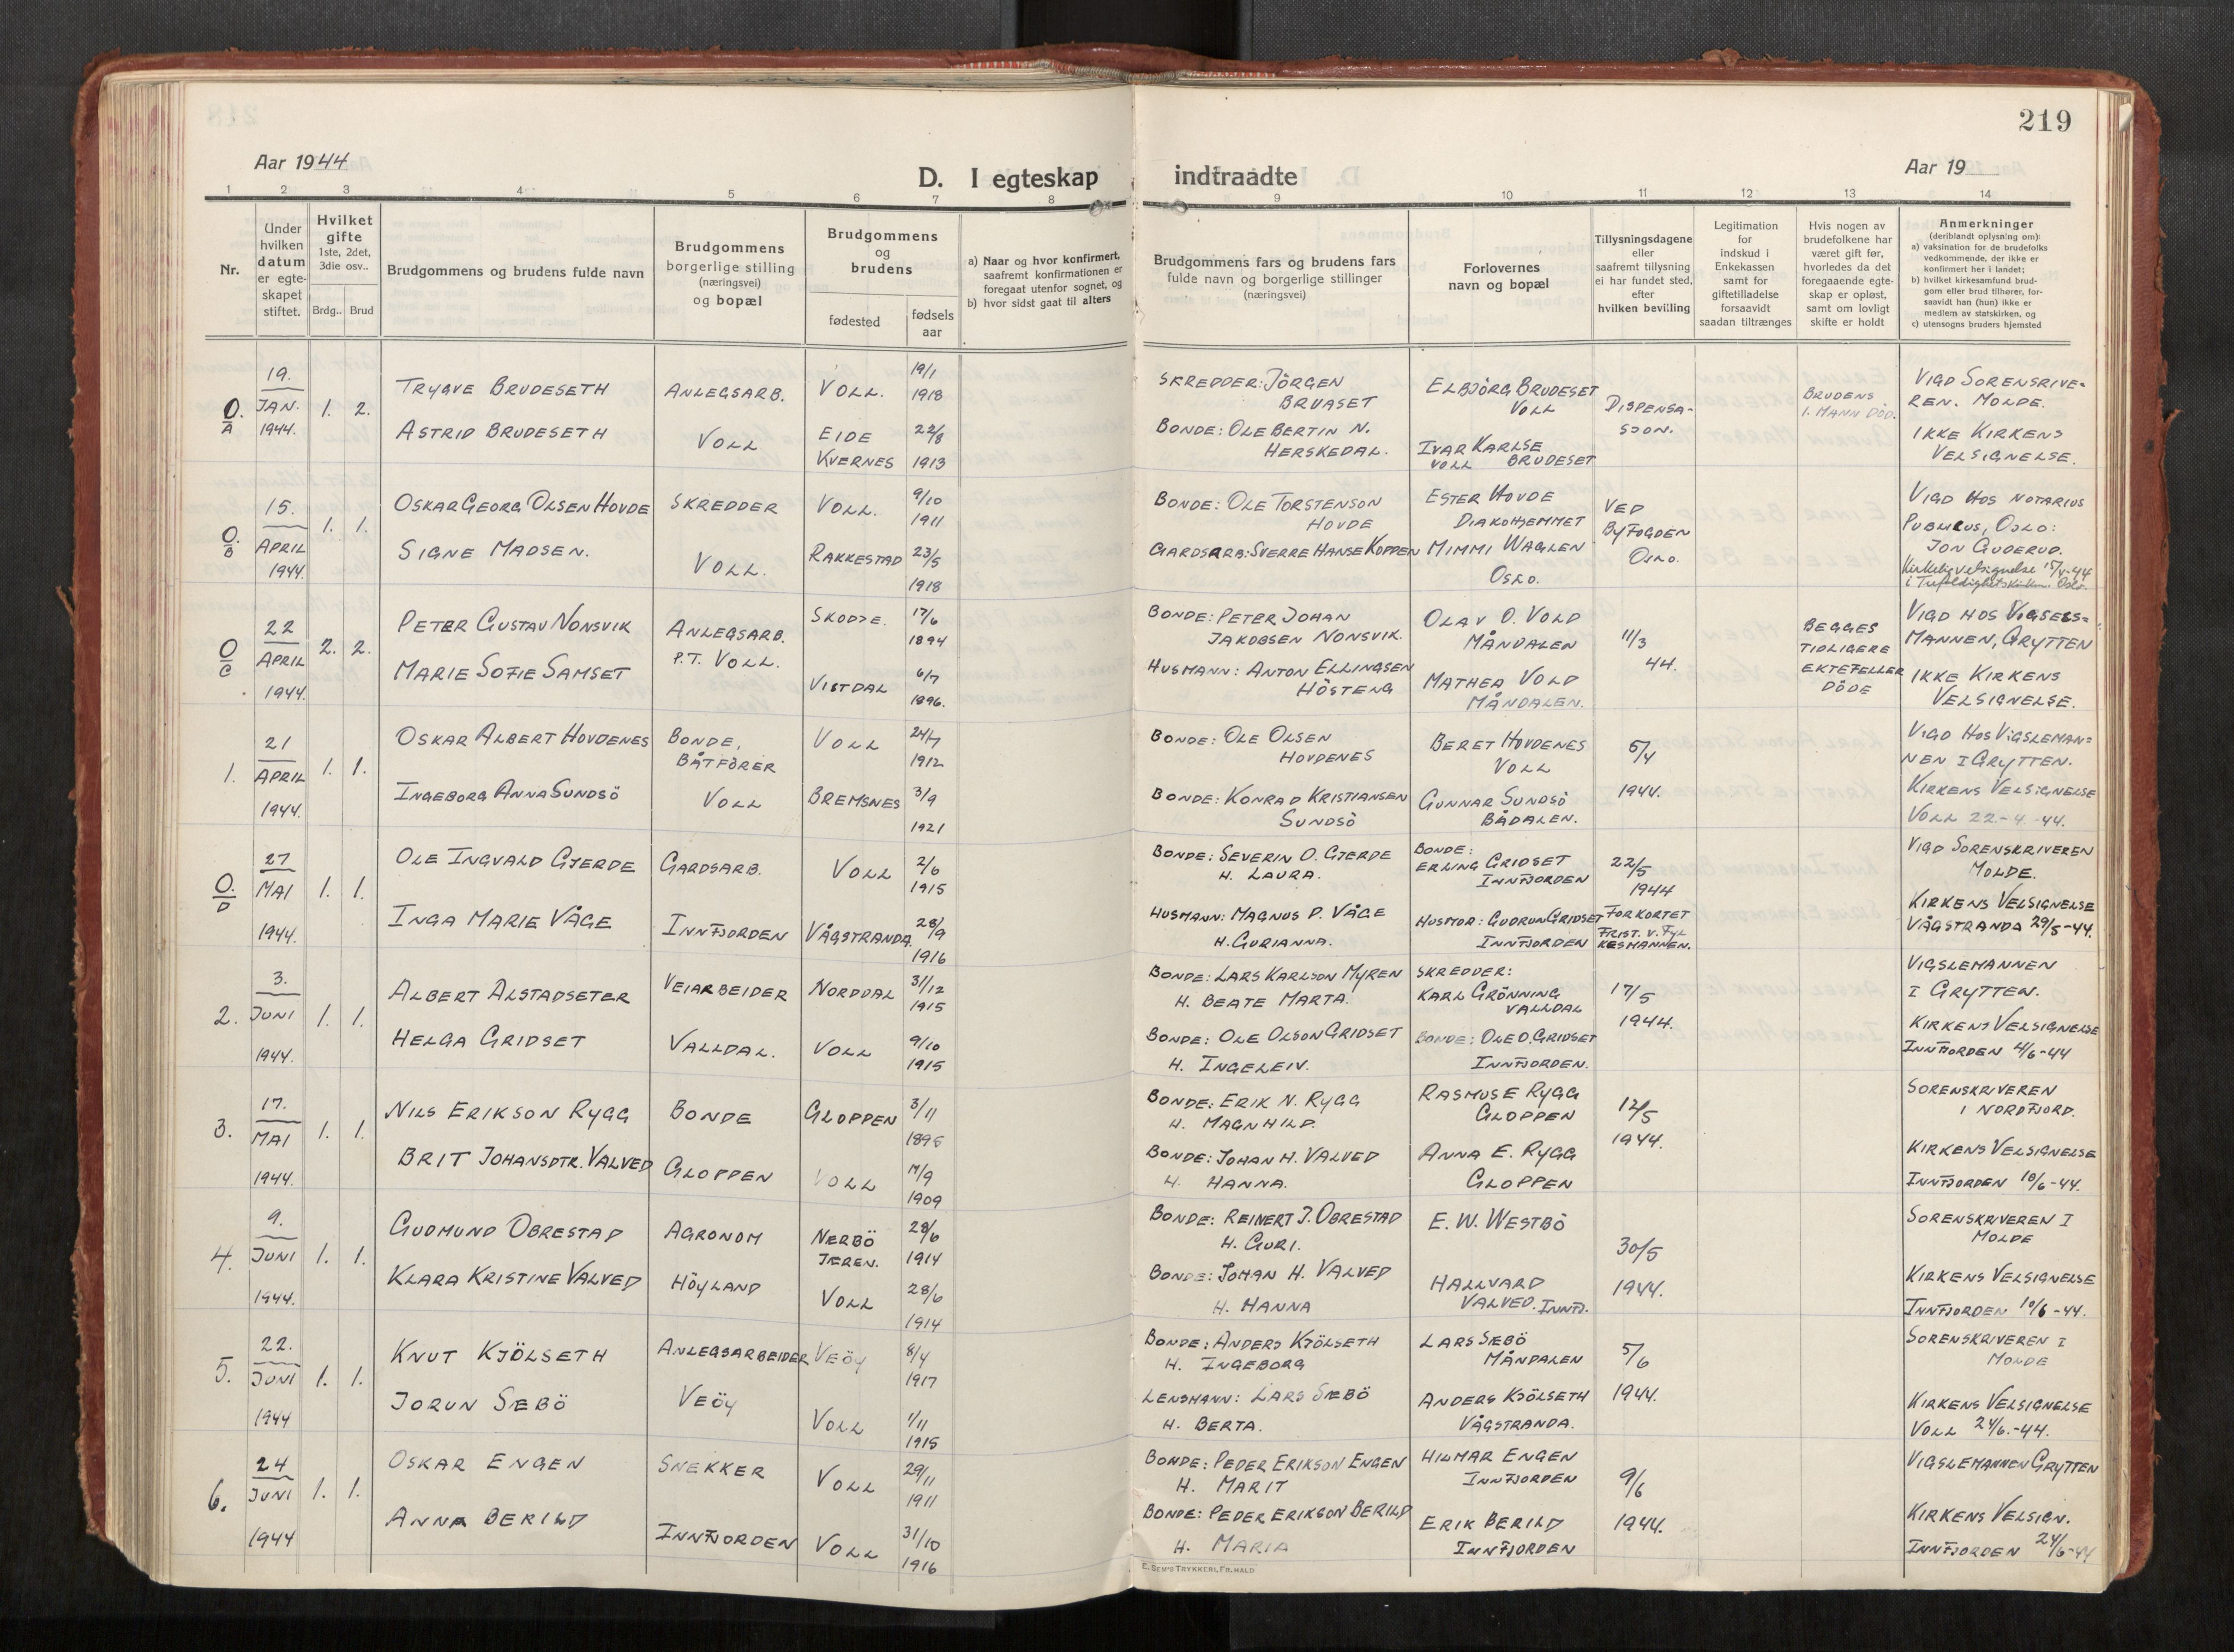 219
Aar 1944
D. I egteskap indtraadte
Aar 19
1 2 3 4 5 6 7 8 9 10 11 12 13 14
Nr.
Under
hvilken
datum
er egte-
skapet
stiftet.
Hvilket
gifte
1ste, 2det,
3die osv..
Brdg.. Brud
Brudgommens og brudens fulde navn
Brudgommens
borgerlige stilling
(næringsvei)
og bopæl
Brudgommens
og
brudens
fødested
fødsels
aar
a) Naar og hvor konfirmert,
saafremt konfirmationen er
foregaat utenfor sognet, og
b) hvor sidst gaat til alters
Brudgommens fars og brudens fars
fulde navn og borgerlige stillinger
(næringsvei)
Forlovernes
navn og bopæl
Tillysningsdagene
eller
saafremt tillysning
ei har fundet sted,
efter
hvilken bevilling
Legitimation
for
indskud i
Enkekassen
samt for
giftetilladelse
forsaavidt
saadan tiltrænges
Hvis nogen av
brudefolkene har
været gift før,
hvorledes da det
foregaaende egte-
skap er opløst,
samt om lovligt
skifte er holdt
Anmerkninger
(deriblandt oplysning om):
a) vaksination for de brudefolks
vedkommende, der ikke er
konfirmert her i landet;
b) hvilket kirkesamfund brud-
gom eller brud tilhører, for-
saavidt han (hun) ikke er
medlem av statskirken, og
c) utensogns bruders hjemsted
O.
A
19.
JAN.
1944.
1. 2.
TRYGVE BRUDESETH
ASTRID BRUDESETH
ANLEGSARB.
VOLL
VOLL.
EIDE
KVERNES
19/1
1918
22/8
1913
SKREDDER: JÖRGEN
BRUASET
BONDE: OLE BERTIN N.
HERSKEDAL.
ELBJÖRG BRUDESET
VOLL
IVAR KARLSE
VOLL BRUDESET
DISPENSA-
SJON.
BRUDENS
1. MANN DÖD.
VIGD SORENSRIVE-
REN. MOLDE.
IKKE KIRKENS
VELSIGNELSE.
O.
B
15.
APRIL
1944.
1. 1.
OSKAR GEORG OLSEN HOVDE
SIGNE MADSEN.
SKREDDER
VOLL.
VOLL.
RAKKESTAD
9/10
1911
23/5
1918
BONDE: OLE TORSTENSON
HOVDE
GARDSARB: SVERRE HANSE KOPPEN
ESTER HOVDE
DIAKOHJEMMET
MIMMI WAGLEN
OSLO.
VED
BYFOGDEN
OSLO.
VIGD HOS NOTARIUS
PUBLICUS, OSLO:
JON GUDERUD.
Kirkelig velsignelse 15/4-44
i Trefoldighetskirken. Oslo.
O
C
22
APRIL
1944.
2. 2.
PETER GUSTAV NONSVIK
MARIE SOFIE SAMSET
ANLEGSARB.
P.T. VOLL.
SKODJE.
VISTDAL
17/6
1894
6/7
1896.
BONDE: PETER JOHAN
JAKOBSEN NONSVIK.
HUSMANN: ANTON ELLINGSEN
HÖSTENG
OLAV O. VOLD
MÅNDALEN
MATHEA VOLD
MÅNDALEN.
11/3
44.
BEGGES
TIDLIGERE
EKTEFELLER
DÖDE
VIGD HOS VIGSELS-
MANNEN, GRYTTEN
IKKE KIRKENS
VELSIGNELSE.
1.
21
APRIL
1944.
1. 1.
OSKAR ALBERT HOVDENES
INGEBORG ANNA SUNDSÖ
BONDE,
BÅTFÖRER
VOLL
VOLL
BREMSNES
24/7
1912
3/9
1921
BONDE: OLE OLSEN
HOVDENES
BONDE: KONRAD KRISTIANSEN
SUNDSÖ
BERET HOVDENES
VOLL
GUNNAR SUNDSÖ
BÅDALEN.
5/4
1944.
VIGD HOS VIGSLEMAN-
NEN I GRYTTEN.
KIRKENS VELSIGNELSE
VOLL 22-4-44.
O.
D
27
MAI
1944.
1. 1.
OLE INGVALD GJERDE
INGA MARIE VÅGE
GARDSARB.
INNFJORDEN
VOLL
VÅGSTRANDA.
2/6
1915
28/9
1916
BONDE: SEVERIN O. GJERDE
H. LAURA.
HUSMANN: MAGNUS P. VÅGE
H. GURIANNA.
BONDE:
ERLING GRIDSET
INNFJORDEN
HUSMOR: GUDRUN GRIDSET
INNFJORDEN
22/5
1944
FORKORTET
FRIST. V. FYL
KESMANNEN.
VIGD SORENSKRIVEREN
MOLDE.
KIRKENS VELSIGNELSE
VÅGSTRANDA 29/5-44.
2.
3.
JUNI
1944.
1. 1.
ALBERT ALSTADSETER
HELGA GRIDSET
VEIARBEIDER
VALLDAL.
NORDDAL
VOLL
31/12
1915
9/10
1915
BONDE: LARS KARLSON MYREN
H. BEATE MARTA.
BONDE: OLE OLSON GRIDSET
H. INGELEIV.
SKREDDER:
KARL GRÖNNING
VALLDAL
BONDE: OLE O. GRIDSET
INNFJORDEN.
17/5
1944.
VIGSLEMANNEN
I GRYTTEN.
KIRKENS VELSIGNELSE
INNFJORDEN 4/6-44
3.
17.
MAI
1944.
1. 1.
NILS ERIKSON RYGG
BRIT JOHANSDTR. VALVED
BONDE
GLOPPEN
GLOPPEN
VOLL
3/11
1895
14/9
1909
BONDE: ERIK N. RYGG
H. MAGNHILD.
BONDE: JOHAN H. VALVED
H. HANNA.
RASMUS E RYGG
GLOPPEN
ANNA E. RYGG
GLOPPEN
12/5
1944.
SORENSKRIVEREN
I NORDFJORD.
KIRKENS VELSIGNELSE
INNFJORDEN 10/6-44.
4.
9.
JUNI
1944.
1. 1.
GUDMUND OBRESTAD
KLARA KRISTINE VALVED
AGRONOM
HÖYLAND
NERBÖ
JÆREN.
VOLL
28/6
1914
28/6
1914
BONDE: REINERT J. OBRESTAD
H. GURI.
BONDE: JOHAN H. VALVED
H. HANNA
E. W. WESTBÖ
HALLVARD
VALVED. INNFJ.
30/5
1944.
SORENSKRIVEREN I
MOLDE
KIRKENS VELSIGNELSE
INNFJORDEN 10/6-44.
5.
22.
JUNI
1944
1. 1.
KNUT KJÖLSETH
JORUN SÆBÖ
ANLEGSARBEIDER
VEÖY
VEÖY
VOLL
8/4
1917
1/11
1915
BONDE: ANDERS KJÖLSETH
H. INGEBORG
LENSMANN: LARS SÆBÖ
H. BERTA.
LARS SÆBÖ
MÅNDALEN
ANDERS KJÖLSETH
VÅGSTRANDA.
5/6
1944.
SORENSKRIVEREN I
MOLDE
KIRKENS VELSIGNELSE
VOLL 24/6.-44.
6.
24
JUNI
1944
1. 1.
OSKAR ENGEN
ANNA BERILD
SNEKKER
INNFJORDEN
VOLL
VOLL
29/11
1911
31/10
1916
BONDE: PEDER ERIKSON ENGEN
H. MARIT
BONDE: PEDER ERIKSON BERILD
H. MARIA
HILMAR ENGEN
INNFJORDEN
ERIK BERILD
INNFJORDEN
9/6
1944.
VIGSLEMANNEN GRYTTEN
KIRKENS VELSIGN.
INNFJORDEN 24/6-44
E. SEM'S TRYKKERI, FR.HALD